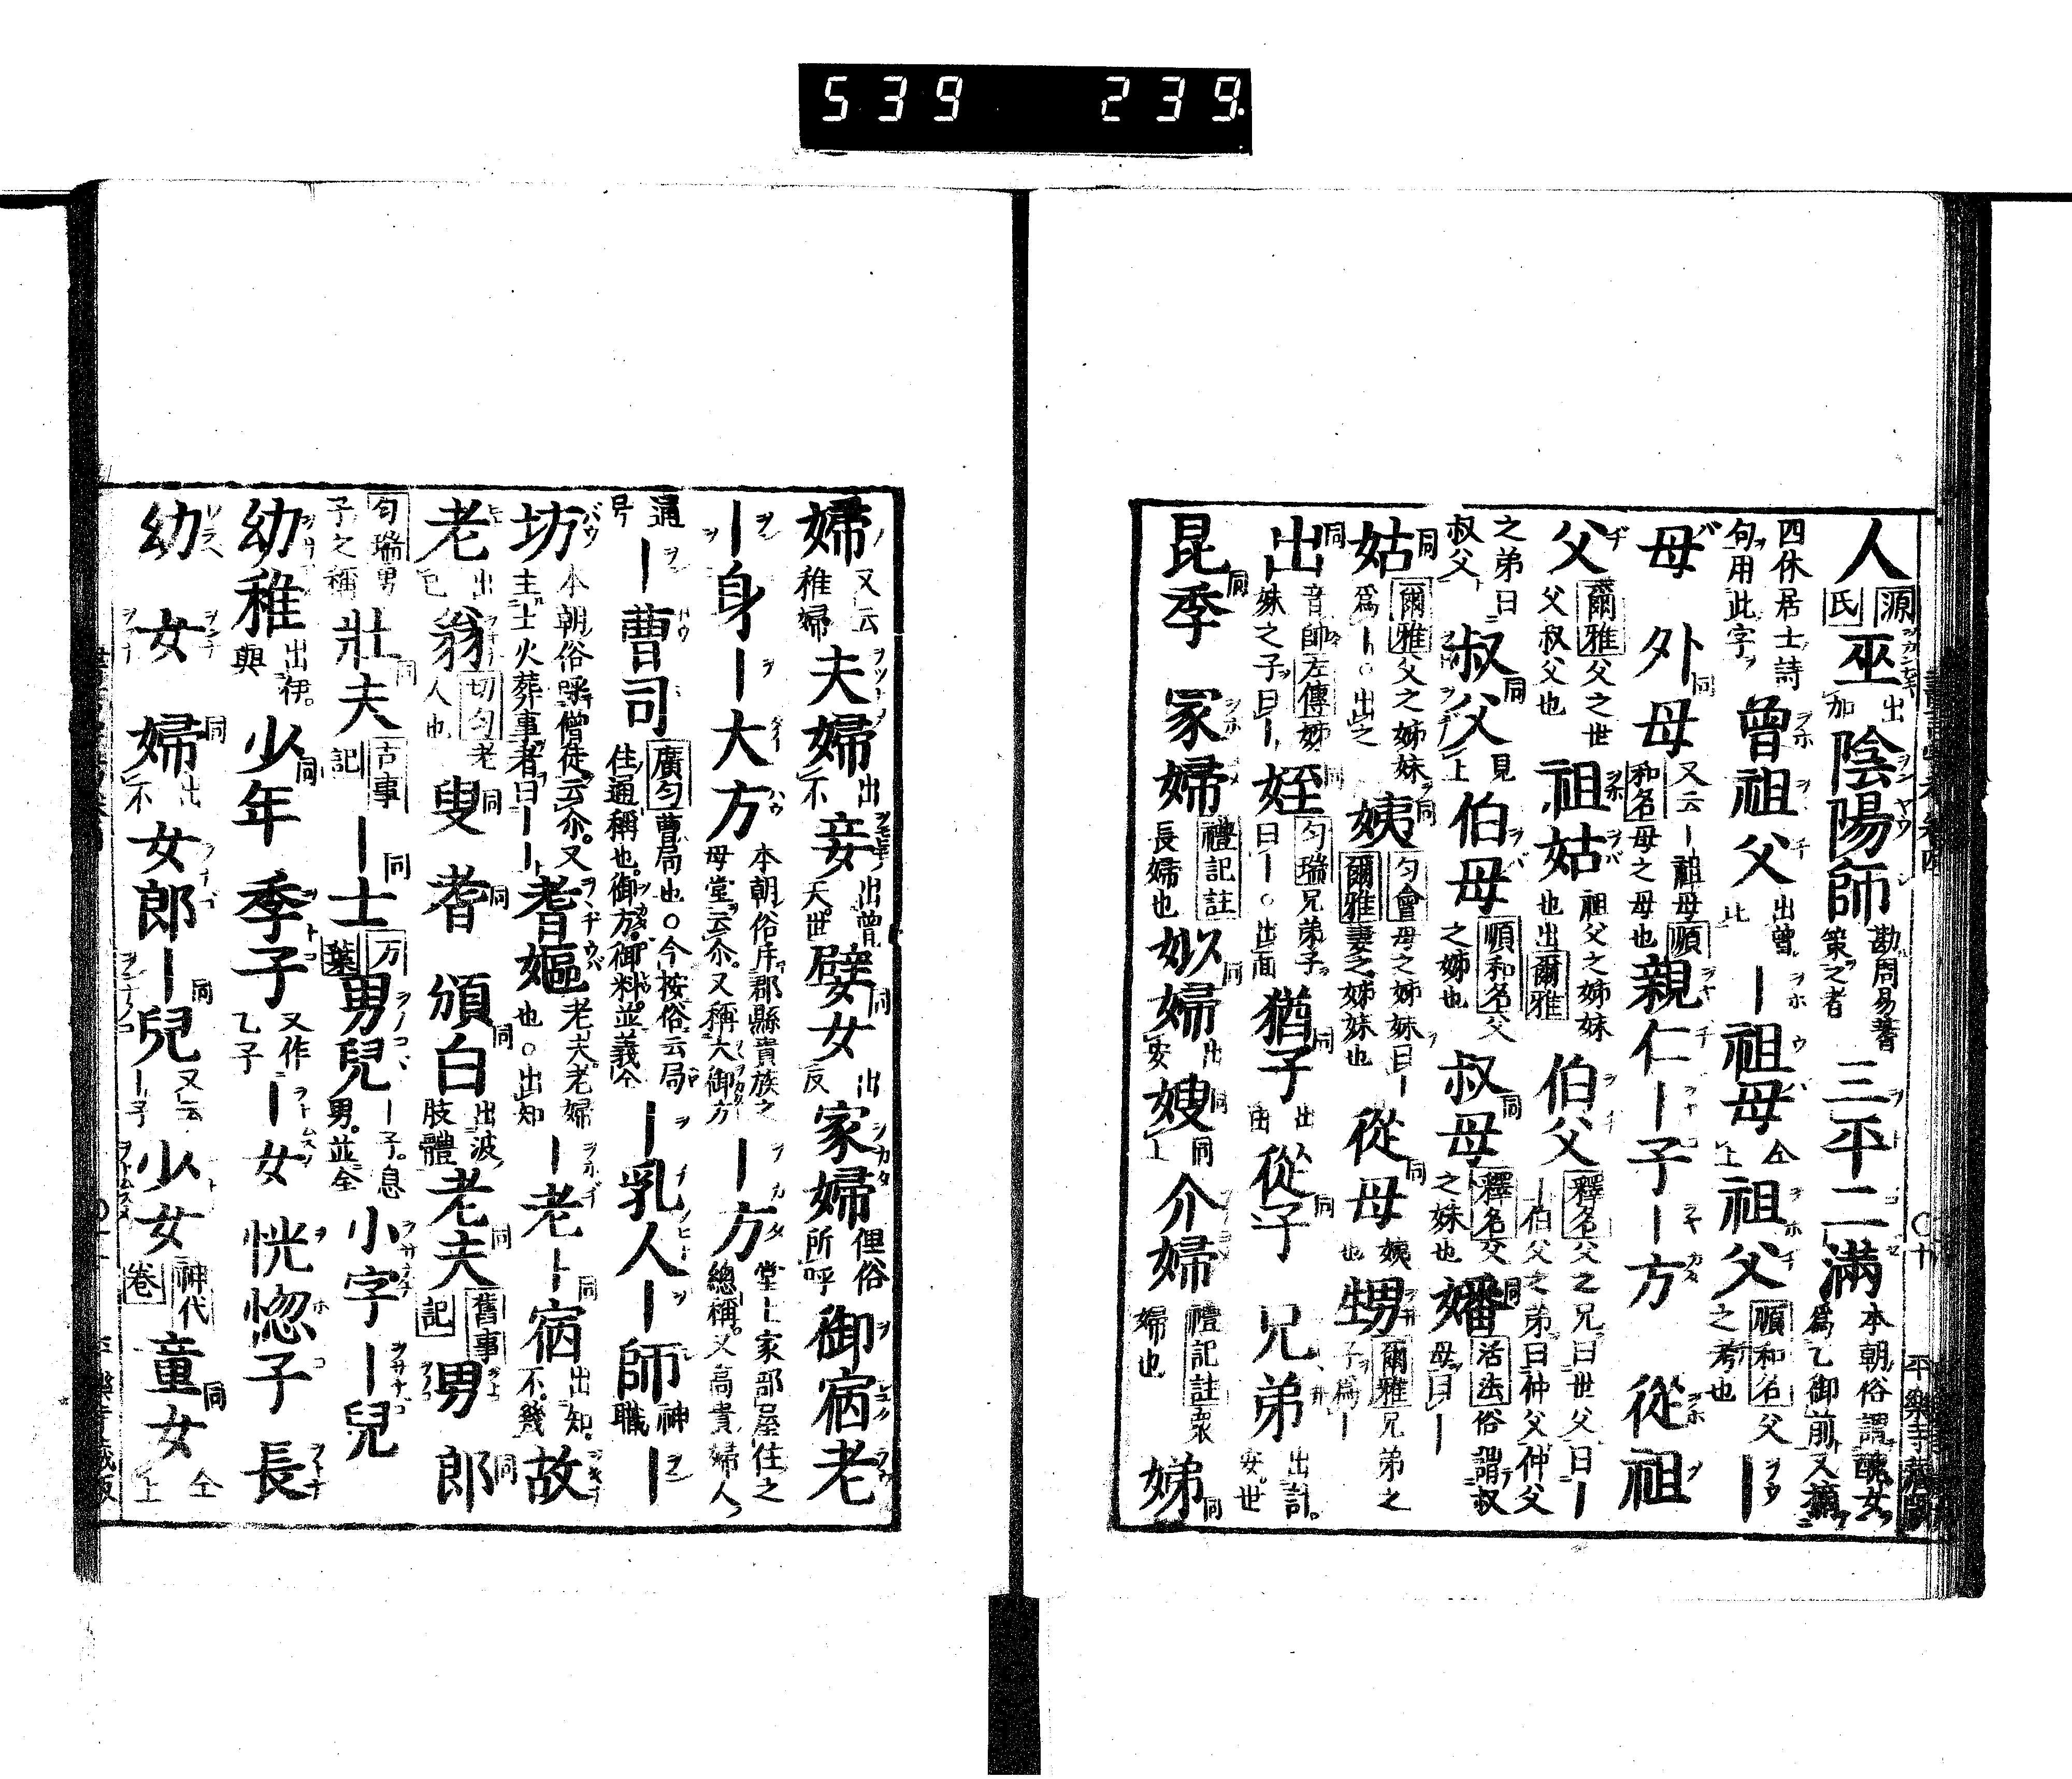 539 239
人 源氏 巫 出加 陰陽師 勘周易蓍策之者 三平二滿 本朝俗謂醜女為乙御前又摘
四休居士詩句用此字 曾祖父 出曾 ー祖母 仝上 祖父 順和名父之考也 ー
母 外母 又云ー祖母順和名母之母也 親仁 ー子 ー方 從祖
父 爾雅父之世父叔父也 祖姑 祖父之姉妹也出爾雅 伯父 釋名父之兄曰世父曰ー ー伯父之弟曰仲父仲父
之弟曰叔父 叔父 見上 伯母 順和名父之姉也 叔母 釋名父之妹也 嬸 活法俗謂叔母曰ー
姑 爾雅父之姉妹為ー○出之 姨 匀會母之姉妹曰ー爾雅妻之姉妹也 從母 姨也 甥 爾雅兄弟之子為ー
出 音帥左傳姉妹之子曰ー 姪 匀瑞兄弟子曰ー○出面 猶子 從子 兄弟 出計安世
昆季 冢婦 禮記註長婦也 姒婦 出安 嫂 同上 介婦 禮記註衆婦也 娣
婦 又云稚婦 夫婦 出不 妾 出曾天世 嬖女 出反 家婦 俚俗所呼 御宿老
ー身 ー大方 本朝俗斥郡縣貴族之母堂云尒又稱大御方 ー方 堂上家部屋住之總稱又高貴婦人
通号 ー曹司 廣匀曹局也○今按俗云局住通稱也御方御料並義仝 ー乳人 ー師 神職 ー
坊 本朝俗呼僧徒云尒又主士火葬事者曰ーー 耆嫗 老夫老婦也○出知 ー老 ー宿 出知不幾 故
老 出 翁 切匀老人也 叟 耆 頒白 出波肢體 老夫 舊事記 男 郎
匀瑞男子之稱 壯夫 古事記 ー士 万葉 男兒 ー子息男並仝 小字 ー兒
幼稚 出伊與 少年 季子 又作乙子 ー女 恍惚子 長
幼 女 婦 出不 女郎 ー兒 又云ー子 少女 神代卷 童女 仝上